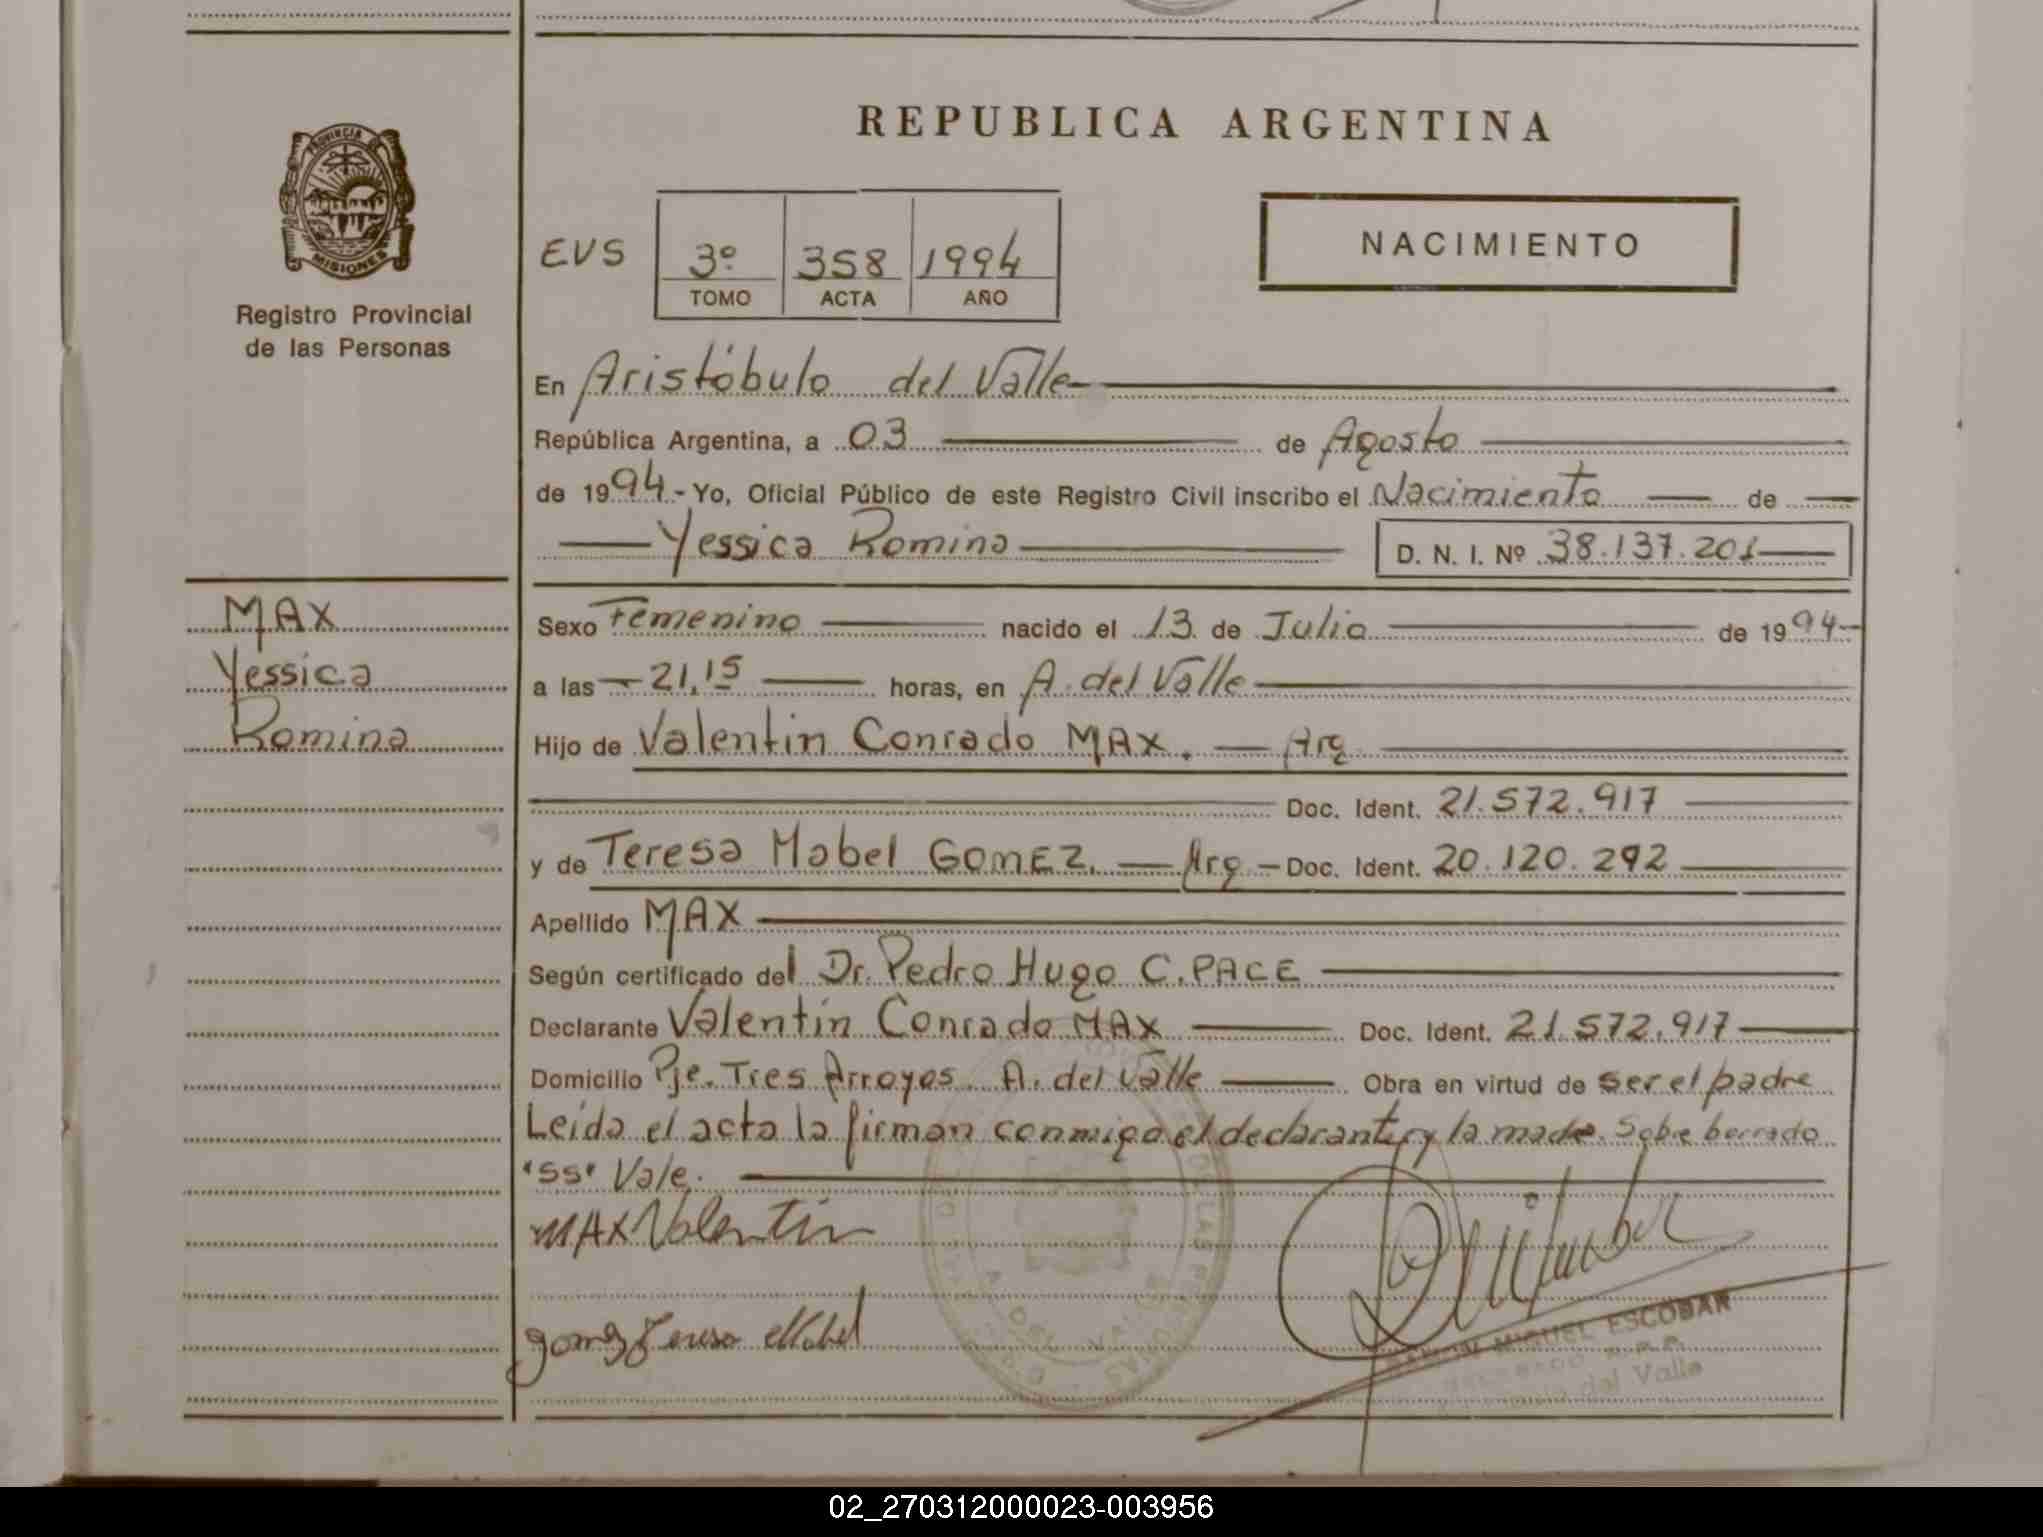 REPUBLICA ARGENTINA
PROVINCIA DE
MISIONES
Registro Provincial
de las Personas
EVS
3º 358 1994
TOMO ACTA AÑO
NACIMIENTO
En Aristóbulo del Valle
República Argentina, a 03 de Agosto
de 1994.- Yo, Oficial Público de este Registro Civil inscribo el Nacimiento de
Yessica Romina D. N. I. Nº 38.137.201
MAX
Yessica
Romina
Sexo Femenino nacido el 13 de Julio de 1994
a las 21,15 horas, en A. del Valle
Hijo de Valentin Conrado MAX. Arg
Doc. Ident. 21.572.917
y de Teresa Mabel GOMEZ. Arg Doc. Ident. 20.120.292
Apellido MAX
Según certificado del Dr. Pedro Hugo C. PACE
Declarante Valentín Conrado MAX Doc. Ident. 21.572.917
Domicilio Pje. Tres Arroyos A. del Valle Obra en virtud de ser el padre
Leída el acta la firman conmigo el declarante y la madre. Sobre borrado
"ss" Vale.
MAX Valentin
gomez Teresa Mabel
RAMON MIGUEL ESCOBAR
del Valle
02_270312000023-003956